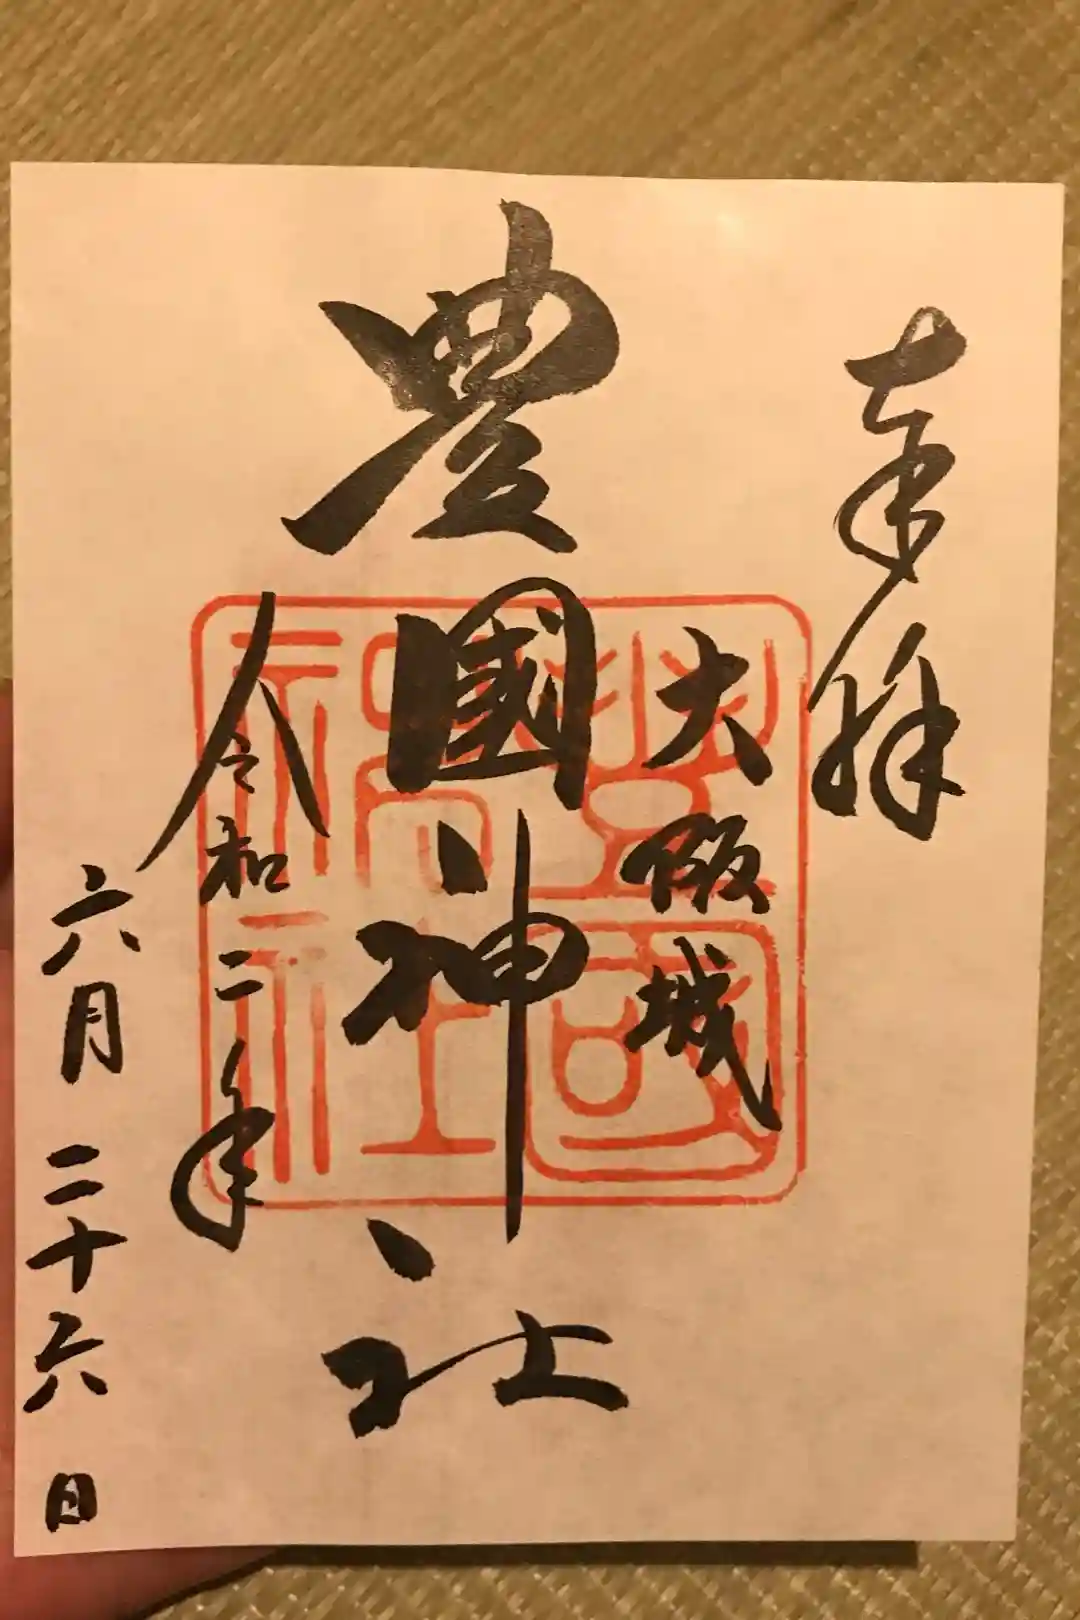 奉拝
大阪城
豊國神社
令和二年
六月二十六日
豊國神社